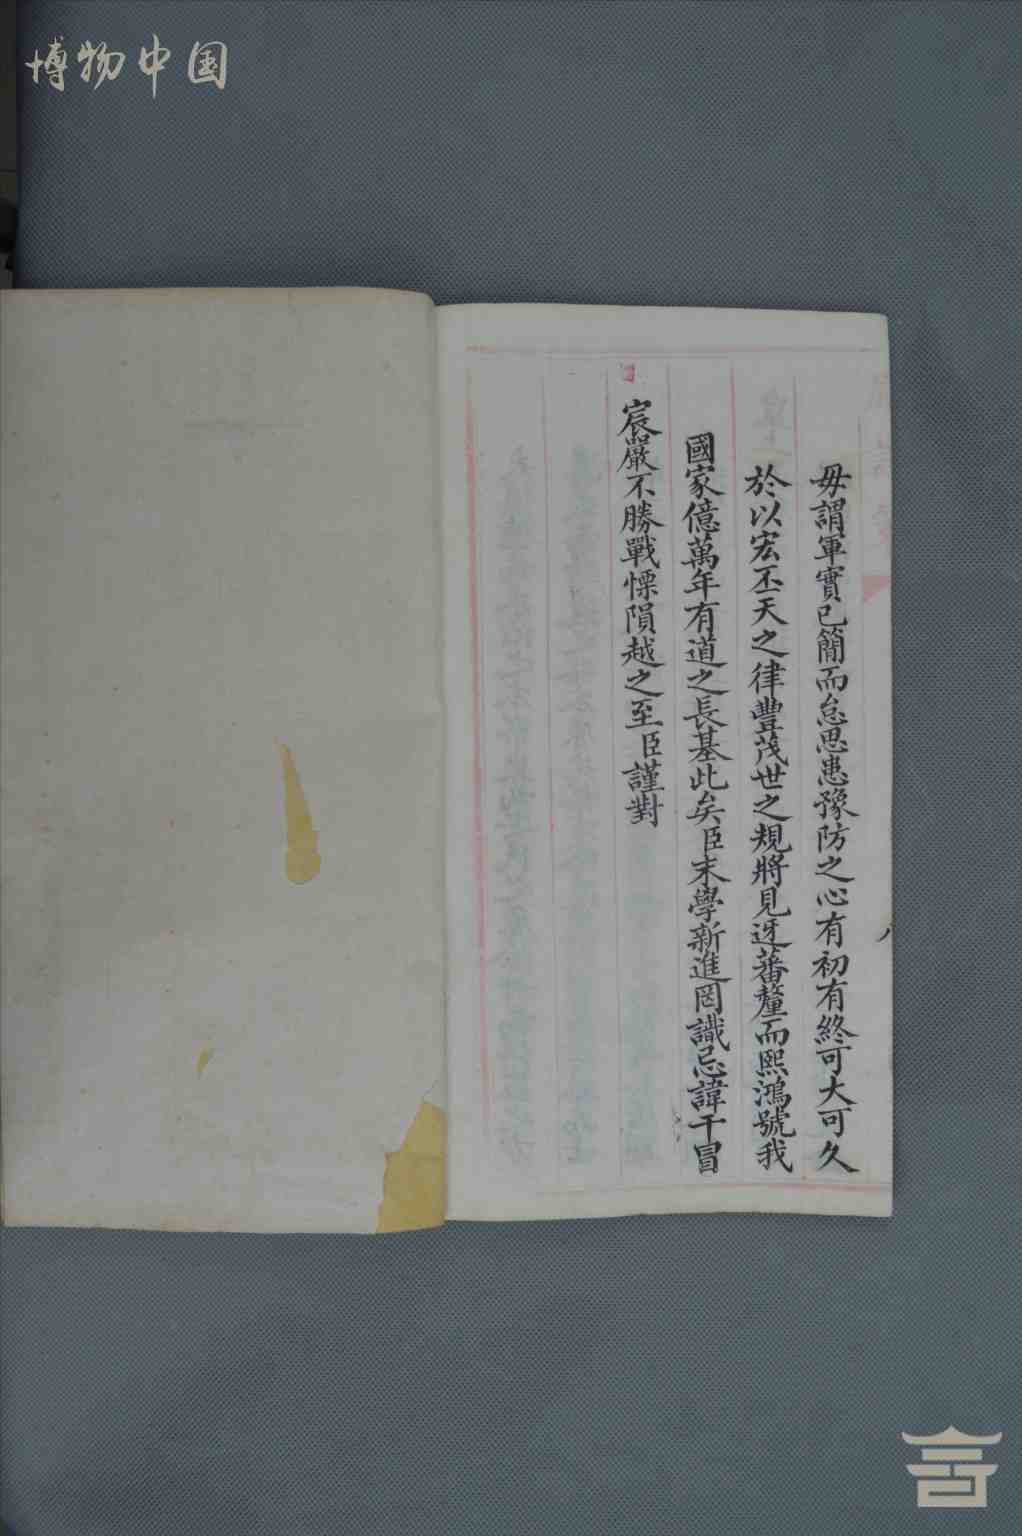 博物中国
毋謂軍實已簡而怠思患豫防之心有初有終可大可久
於以宏丕天之律豐茂世之規將見迓蕃釐而熙鴻號我
國家億萬年有道之長基此矣臣末學新進罔識忌諱干冒
宸嚴不勝戰慄隕越之至臣謹對